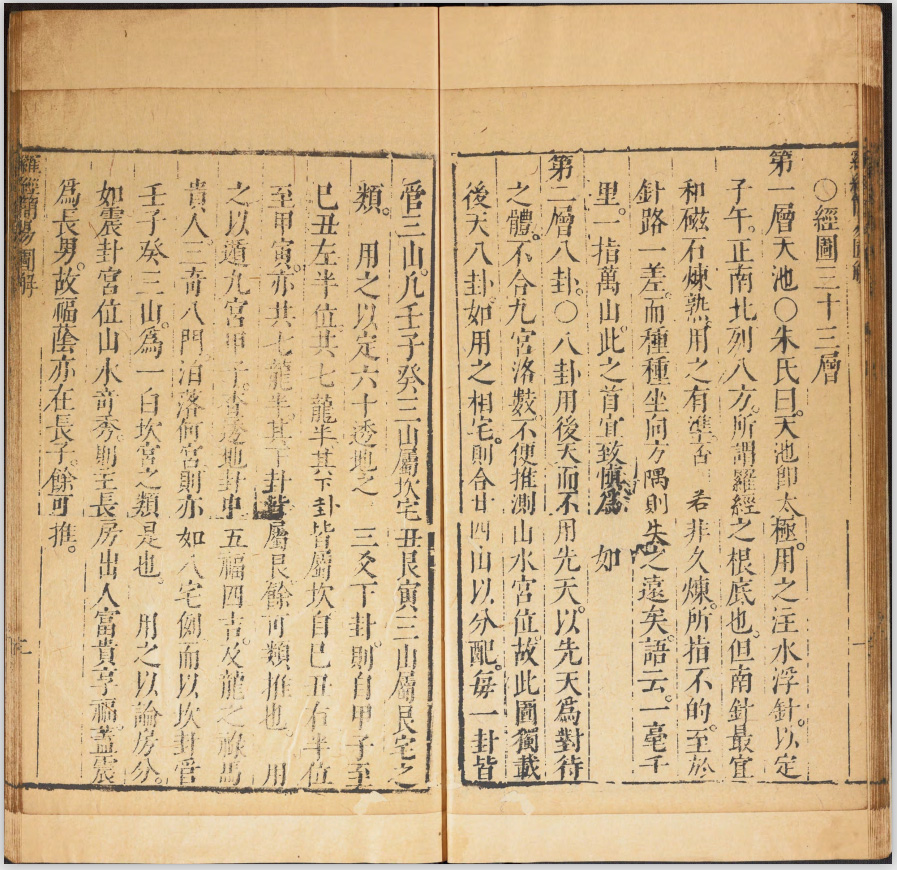 〇經圖三十三層
第一層天池〇朱氏曰天池卽太極用之注水浮針以定
子午正南北列八方所謂羅經之根底也但南針最宜
和磁石煉熟用之有準否 若非久煉所指不的至於
針路一差而種種坐向方隅則失之遠矣語云一毫千
里一指萬山此之首宜致慎爲 如
第二層八卦〇八卦用後天而不用先天以先天爲對待
之體不合九宮洛數不便推測山水宮位故此圖獨載
後天八卦如用之相宅則合廿四山以分配每一卦皆
管三山凡壬子癸三山屬坎宅丑艮寅三山屬艮宅之
類 用之以定六十透地之 三爻下卦則自甲子至
巳丑左半位其七龍半其下卦皆屬坎自巳丑右半位
至甲寅亦共七龍半其下卦皆屬艮餘可類推也 用
之以遁九宮甲子查透地卦中五福四吉及龍之祿馬
貴人三奇八門泊落何宮則亦如八宅例而以坎卦管
壬子癸三山爲一白坎宮之類是也 用之以論房分
如震卦宮位山水奇秀則主長房出人富貴享福蓋震
爲長男故福蔭亦在長子餘可推
羅經簡易圖解